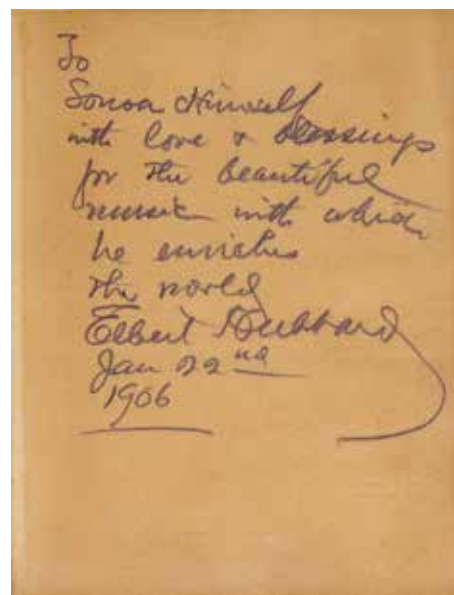 To
Sousa Himself
with love & blessings
for the beautiful
music with which
he enriches
the world
Elbert Hubbard
Jan 22nd
1906